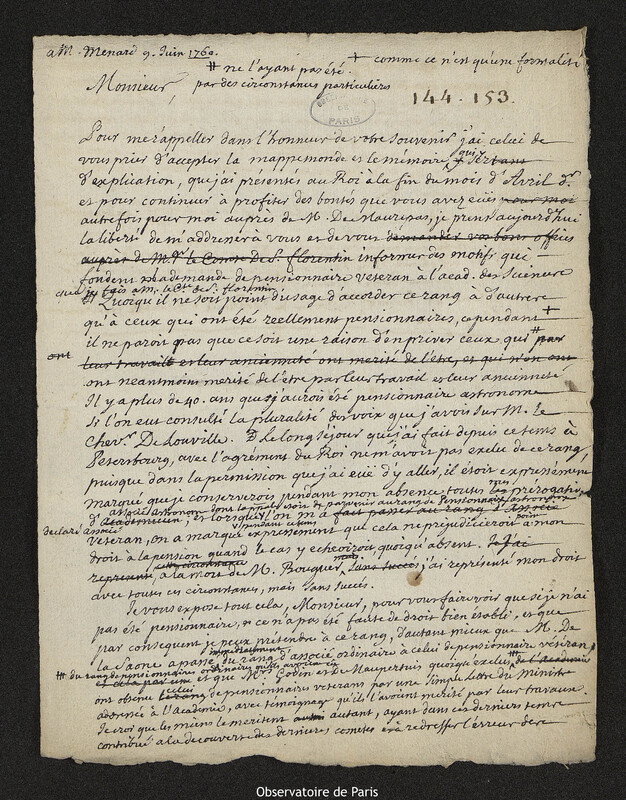 a M. Menard 9. Juin 1760.
+ comme ce n'est qu'une formalité
# ne l'ayant pas été
par des circonstances particulieres
Monsieur,
144.153.
PARIS
Pour me rappeller dans l'honneur de votre souvenir j'ai celui de
vous prier d'accepter la mappemonde et le mémoire qui sert
d'explication, que j'ai présentés au Roi à la fin du mois d'Avril dr.
et pour continuer à profiter des bontés que vous avez eües pour moi
autrefois pour moi auprès de M. De Maurepas, je prens aujourd'hui
la liberté de m'addresser à vous et de vous demander vos bons offices
auprès de M.gr le Comte de St. Florentin informer des motifs qui
fondent la demande de pensionnaire veteran à l'acad. des Sciences
que je fais à M. le Cte. de St. florentin.
Quoique il ne soit point d'usage d'accorder ce rang à d'autres
qu'à ceux qui ont été réellement pensionnaires, cependant +
il ne paroit pas que ce soit une raison d'en priver ceux qui # par
leur travail et leur ancienneté ont merité de l'etre, et qui n'en ont
ont neantmoins merité de l'etre par leur travail et leur ancienneté
Il y a plus de 40. ans que j'aurois été pensionnaire astronome
si l'on eut consulté la pluralité des voix que j'avois sur M. le
Chevr. De Louville. Le long séjour que j'ai fait depuis ce tems à
Petersbourg, avec l'agrément du Roi ne m'avoit pas exclu de ce rang
puisque dans la permission que j'ai eüe d'y aller, il étoit expressément
marqué que je conserverois pendant mon absence toutes les prérogatives
d'Academicien, et lorsque l'on m'a fait passer au rang d'Associé
declaré associé
veteran, on a marqué expressément que cela ne prejudicieroit à mon
droit à la pension quand le cas y echeoiroit quoiqu'absent.
à la mort de M. Bouguer, sans succès, j'ai représenté mon droit
avec toutes ces circonstances, mais sans succès.
Je vous expose tout cela, Monsieur, pour vous faire voir que si je n'ai
pas été pensionnaire, ce n'a pas été faute de droit bien établi, et que
par consequent je peux prétendre à ce rang, d'autant mieux que M. De
la Saone a passé du rang d'associé ordinaire à celui de pensionnaire vétéran,
et que Mrs. Godin et de Maupertuis quoique exclus
ont obtenu celui de pensionnaires veterans par une simple lettre du Ministre
adressée à l'Academie, avec temoignage qu'ils l'avoient merité par leur travaux.
Je croi que les miens le meritent autant, ayant dans ces derniers tems
contribué à la decouverte des dernieres cometes et à redresser l'erreur de
Observatoire de Paris